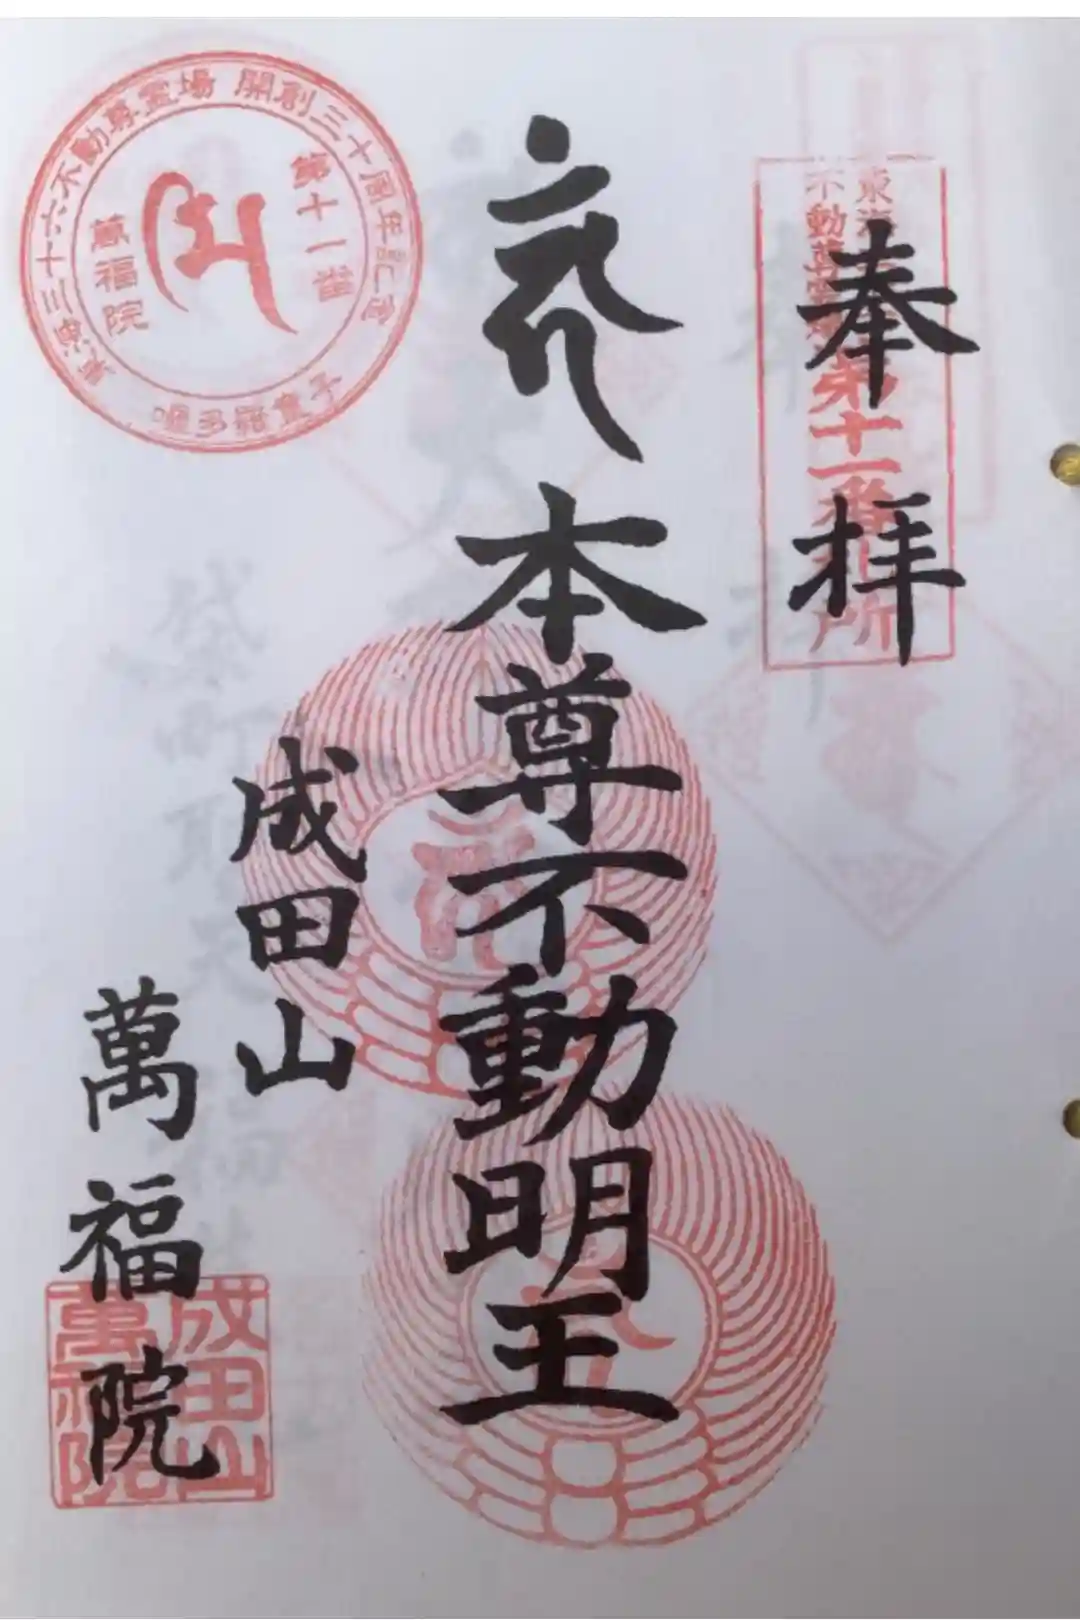 奉拝
東海
不動尊霊
第十一番
所
本尊不動明王
成田山
萬福院
東海三十六不動尊霊場 開創三十周年記念
第十一番
萬福院
童子
成田山
萬福院